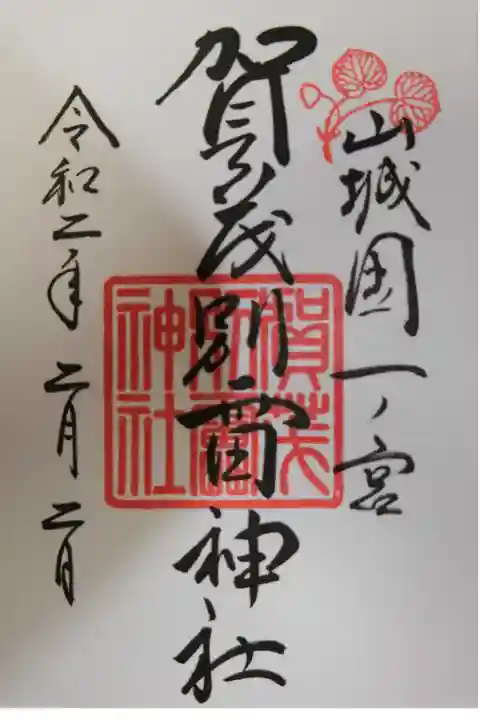 山城国一ノ宮
賀茂別雷神社
賀茂別雷神社
令和二年 二月 二日